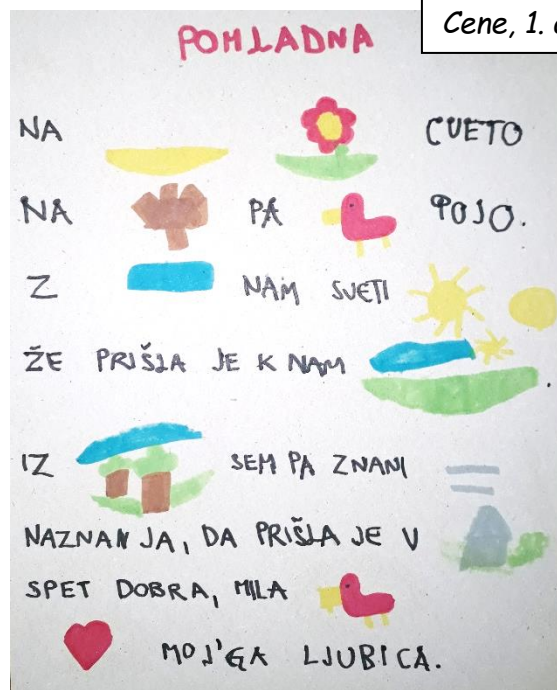 Cene, 1.
POMLADNA
NA CVETO
NA PA POJO.
Z NAM SVETI
ŽE PRIŠLA JE K NAM .
IZ SEM PA ZNANI
NAZNANJA, DA PRIŠLA JE V
SPET DOBRA, MILA
MOJ'GA LJUBICA.